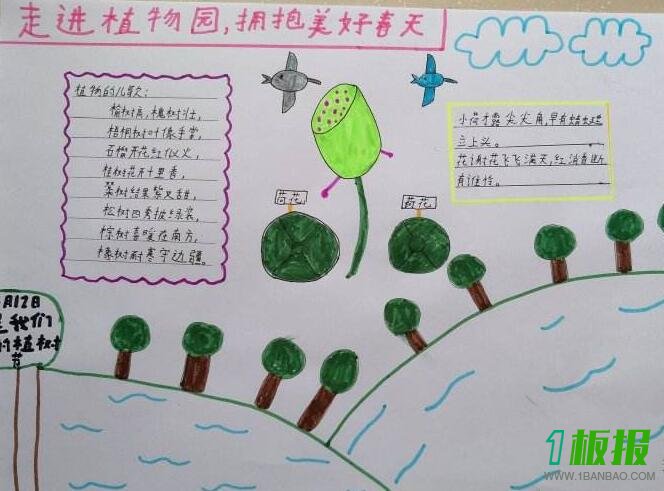 走进植物园,拥抱美好春天
植物的儿歌:
榆树高,槐树壮,
梧桐树叶像手掌,
石榴开花红似火,
桂树花开十里香,
梨树结果紫又甜,
松树四季披绿装,
棕树喜暖在南方,
橡树耐寒守边疆。
小荷才露尖尖角,早有蜻蜓
立上头。
花谢花飞飞满天,红消香断
有谁怜。
荷花
荷花
月12日
是我们
的植树
节
1板报
WWW.1BANBAO.COM